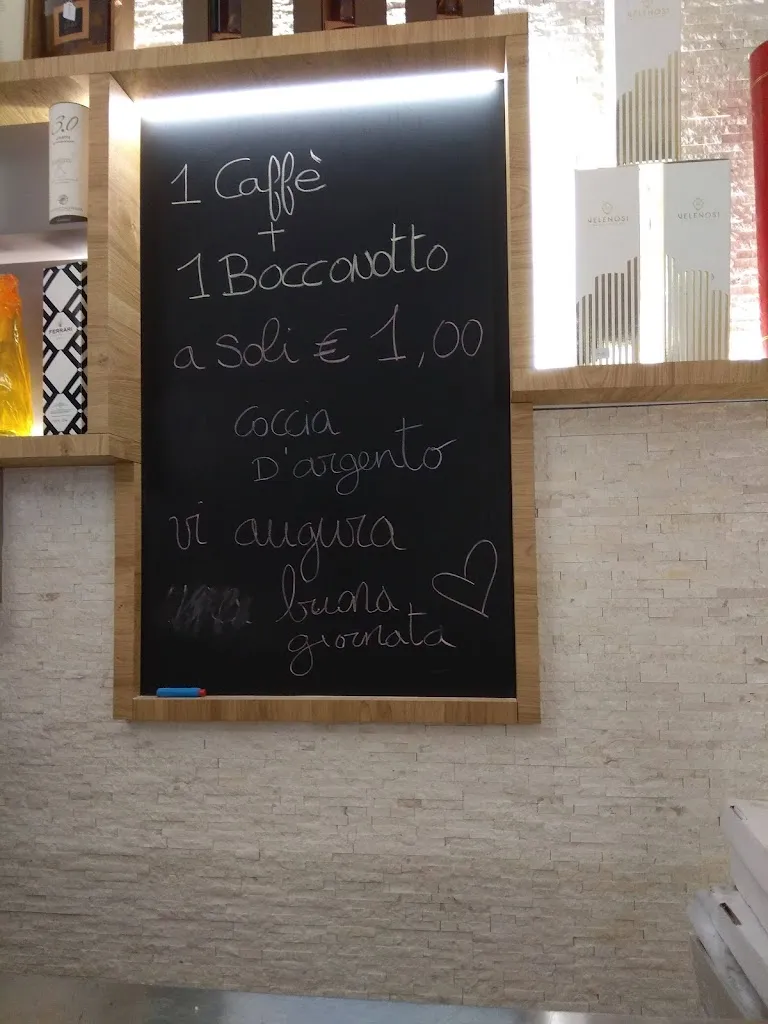 1 Caffè
+
1 Bocconotto
a soli € 1,00
coccia
D'argento
vi augura
buona
giornata
3.0
FERRARI
VELENOSI
VELENOSI
VELENOSI